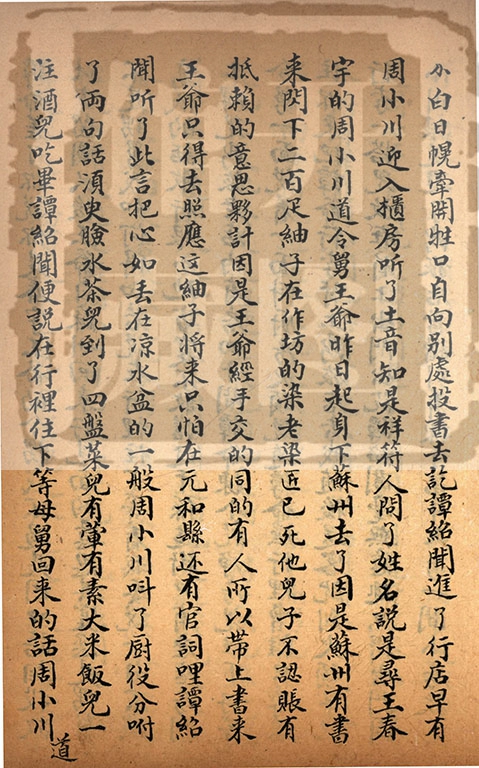 小白日幌牽開牲口自向別處投書去訖譚紹聞進了行店早有
周小川迎入櫃房听了土音知是祥符人問了姓名說是尋王春
宇的周小川道令舅王爺昨日起身下蘇州去了因是蘇州有書
来閃下二百疋紬子在作坊的染老梁近已死他兒子不認賬有
抵賴的意思夥計因是王爺經手交的同的有人所以带上書来
王爺只得去照應这紬子将来只怕在元和縣还有官詞哩譚紹
聞听了此言把心如丢在凉水盆的一般周小川呌了厨役分咐
了两句話湏臾臉水茶兒到了四盤菜兒有葷有素大米飯兒一
注酒兒吃畢譚紹聞便説在行裡住下等母舅回来的話周小川
道